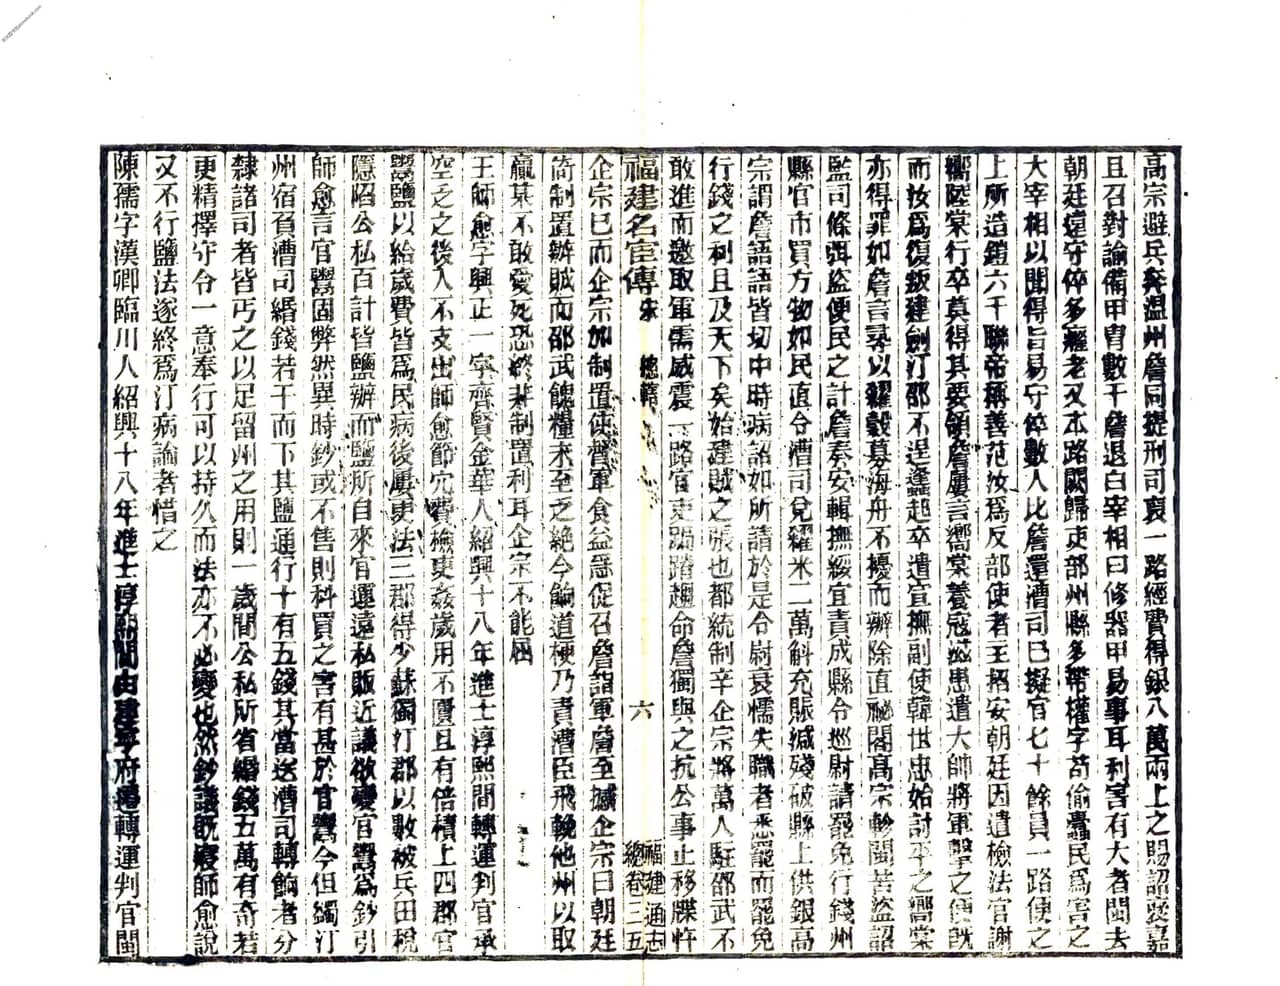 高宗避兵奔溫州詹同提刑司裒一路經費得銀八萬兩上之賜詔褒嘉
且召對諭備甲胄數千詹退白宰相曰修器甲易事耳利害有大者閩去
朝廷遠守倅多癃老又本路闕歸吏部州縣多帶權字苟偷蠹民爲害之
大宰相以聞得旨易守倅數人比詹還漕司已擬官七十餘員一路便之
上所造鎧六千聯帝稱善范汝爲反部使者主招安朝廷因遣檢法官謝
嚮陸棠行卒莫得其要領詹屢言嚮棠養寇滋患遣大帥將軍擊之便旣
而汝爲復叛建劍汀邵不逞蠭起卒遣宣撫副使韓世忠始討平之嚮棠
亦得罪如詹言尋以糴穀募海舟不擾而辦除直祕閣高宗軫閩苦盜詔
監司條弭盜便民之計詹奏安輯撫綏宜責成縣令巡尉請罷免行錢州
縣官市買方物如民直令漕司兌糴米二萬斛充賑減殘破縣上供銀高
宗謂詹語語皆切中時病詔如所請於是令尉衰懦失職者悉罷而罷免
行錢之利且及天下矣始建賊之張也都統制辛企宗將萬人駐邵武不
敢進而邀取軍需威震一路官吏跼蹐趨命詹獨與之抗公事止移牒忤
福建名宦傳 宋 總轄 六 福建通志總卷三五
企宗已而企宗加制置使督軍食益急促召詹詣軍詹至撼企宗曰朝廷
倚制置辦賊而邵武餽糧未至乏絶今餉道梗乃責漕臣飛輓他州以取
贏某不敢愛死恐終非制置利耳企宗不能屈
王師愈字與正一字齊賢金華人紹興十八年進士淳熙間轉運判官承
空乏之後入不支出師愈節冗費檢吏姦歲用不匱且有倍積上四郡官
鬻鹽以給歲費皆爲民病後屢更法三郡得少蘇獨汀郡以數被兵田稅
隱陷公私百計皆鹽辦而鹽所自來官運遠私販近議欲變官鬻爲鈔引
師愈言官鬻固弊然異時鈔或不售則科買之害有甚於官鬻今但蠲汀
州宿負漕司緡錢若干而下其鹽通行十有五錢其當送漕司轉餉者分
隸諸司者皆丐之以足留州之用則一歲間公私所省緡錢五萬有奇若
更精擇守令一意奉行可以持久而法亦不必變也然鈔議旣寢師愈說
又不行鹽法遂終爲汀病論者惜之
陳孺字漢卿臨川人紹興十八年進士淳熙間由建寧府擢轉運判官閩